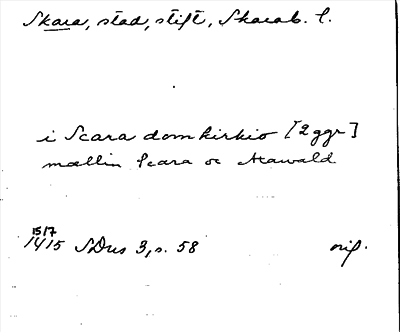 Skara, stad, stift, Skarab. l.
i Scara domkirkio [2 ggr]
mællin Scara oc Aawald
15/7
1415 SDns 3, s. 58 orig.